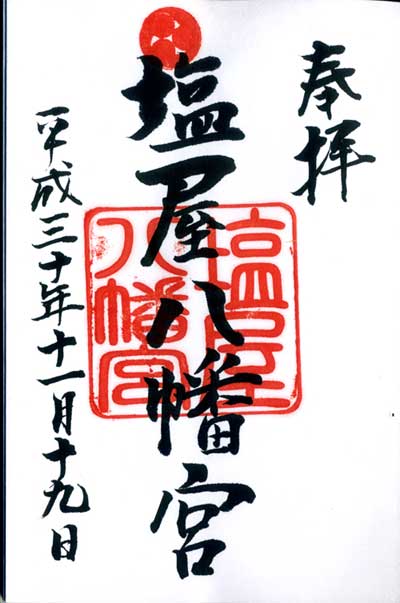 奉拝
塩屋八幡宮
塩屋
八幡宮
平成三十年十一月十九日